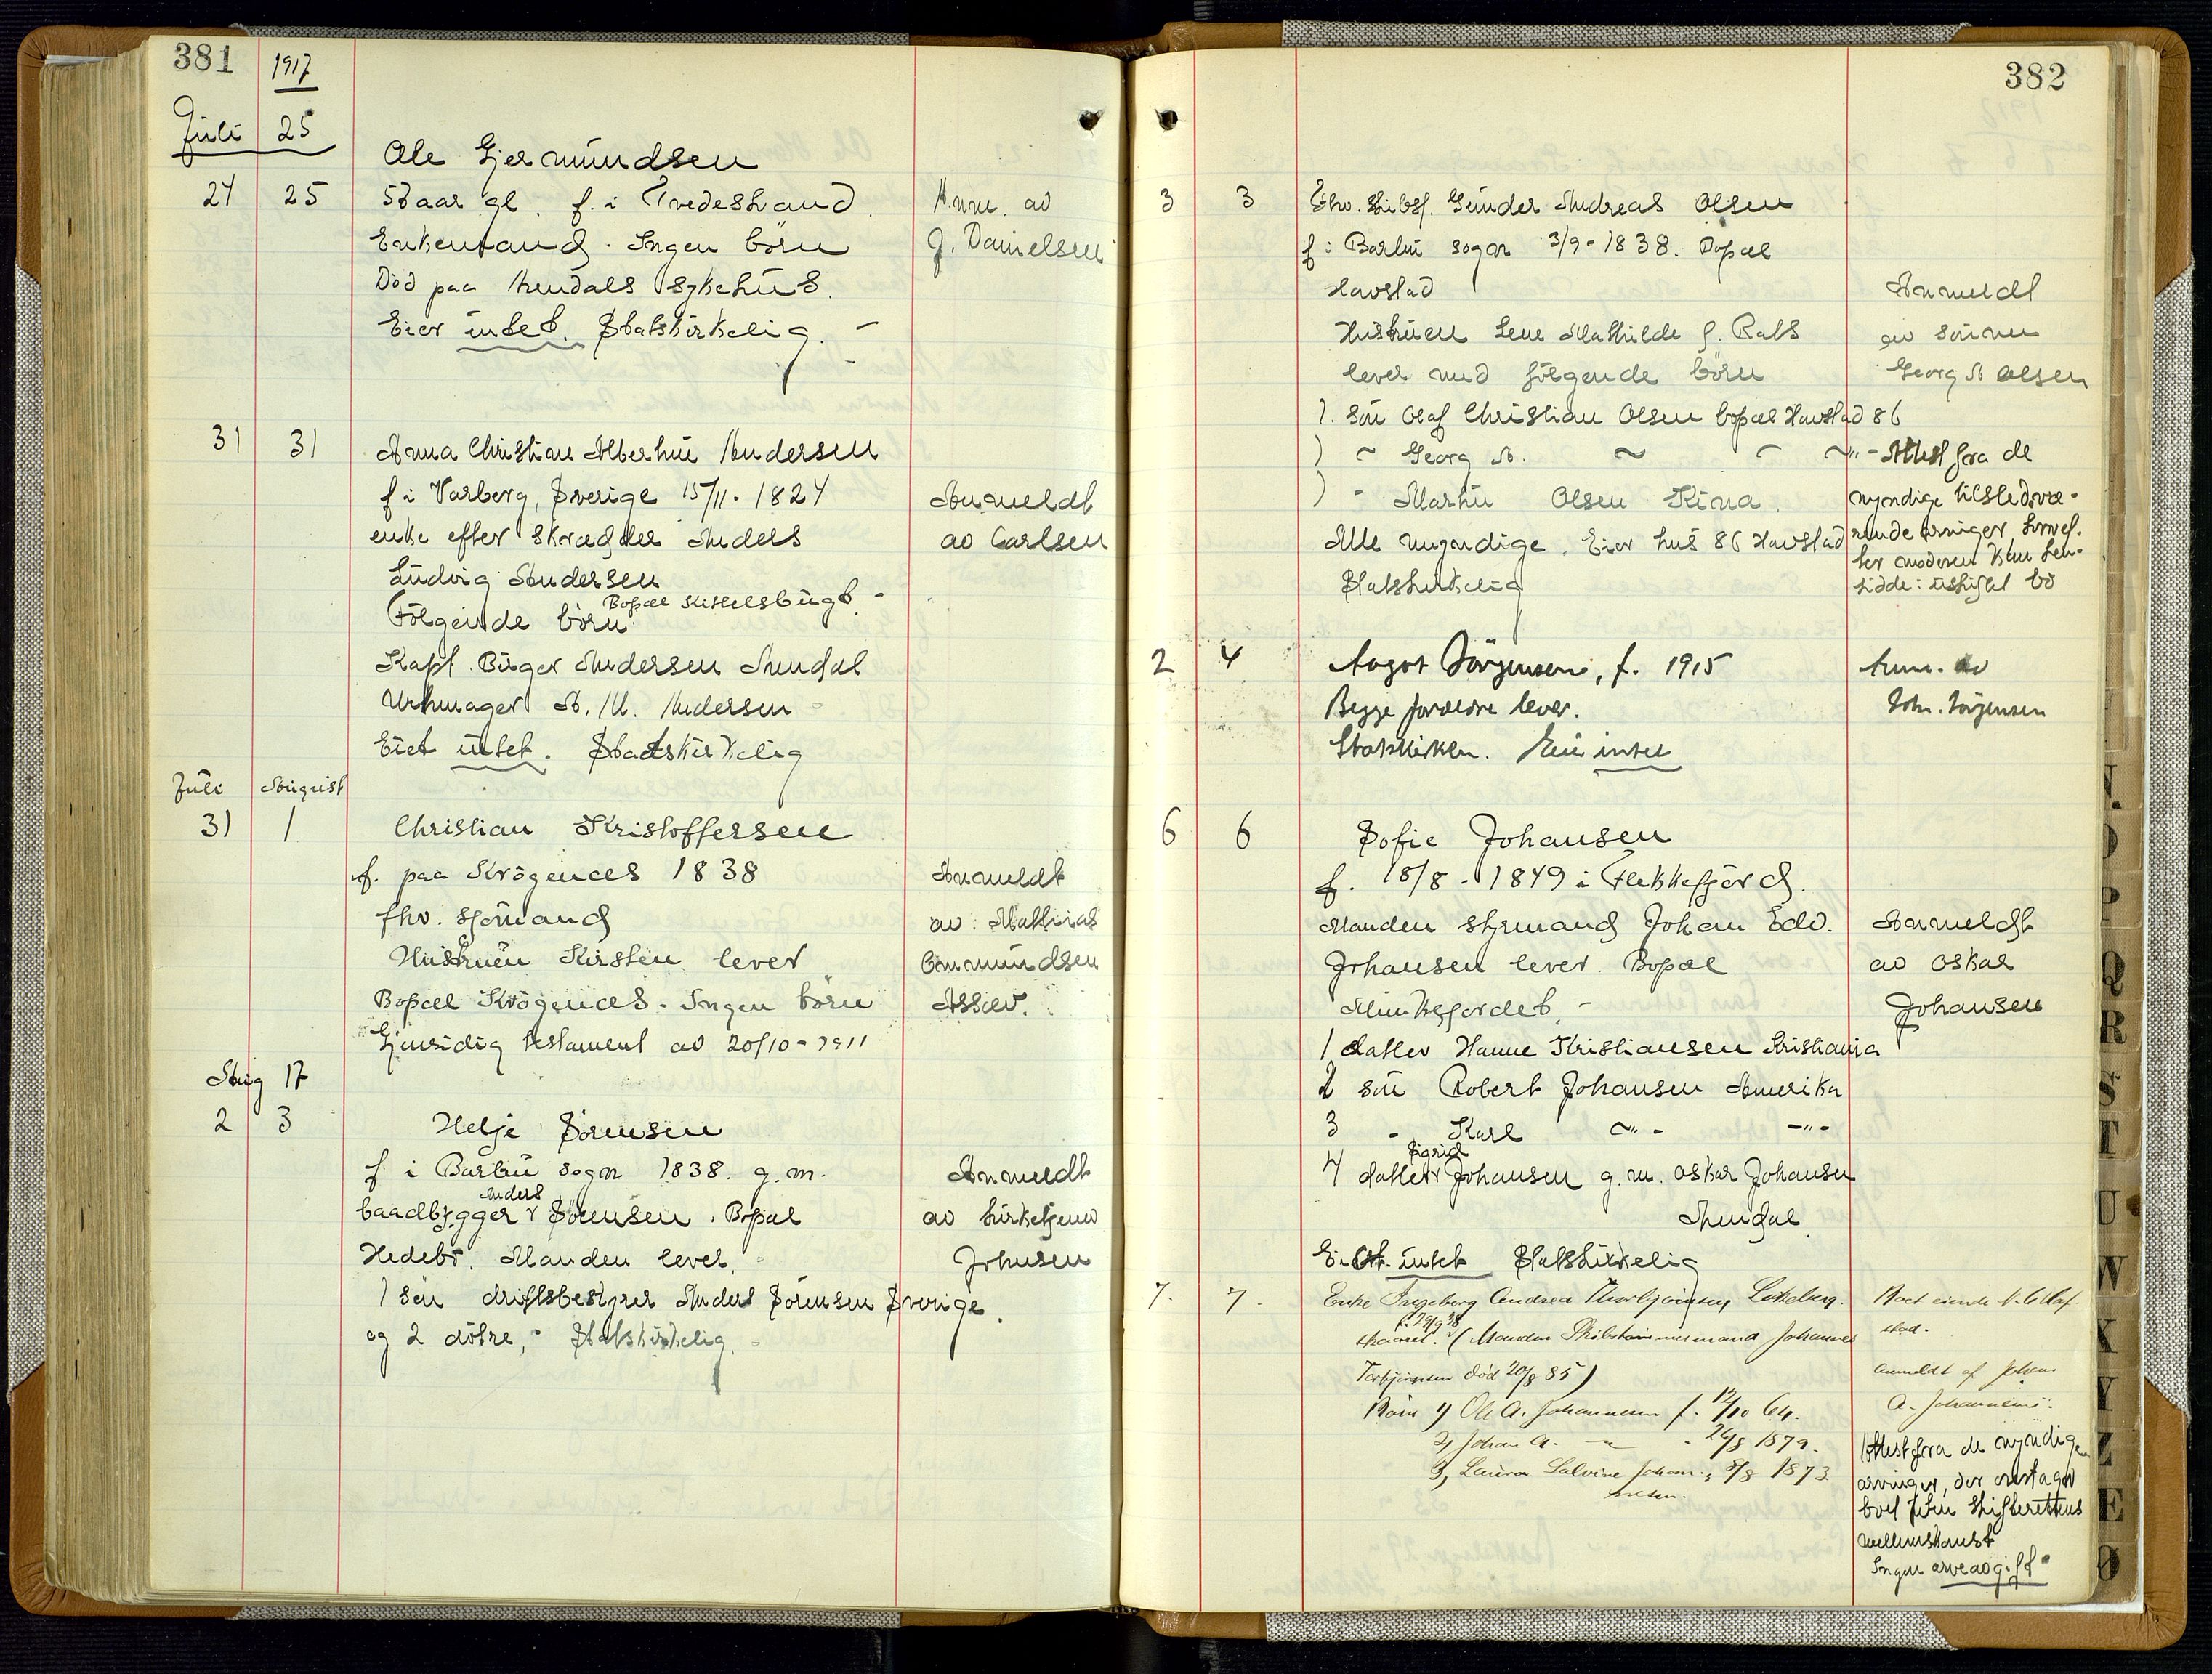 381 1917
Juli 25
Ole Gjermundsen
24 25 57 aar gl. f. i Tvedestrand. Anm. av
Enkemand. Ingen børn J. Danielsen
Død paa Arendals Sykehus.
Eier intet. Statskirkelig.
31 31 Anna Christine Albertine Andersen
f i Varberg, Sverige 15/11-1824 Anmeldt
enke efter skrædder Anders av Carlsen
Ludvig Andersen
Bopæl Kittelsbugt -
Følgende børn
Kapt. Birger Andersen Arendal
Urhmager A. M. Andersen -
Eiet intet. Statskirkelig
Juli August
31 1 Christian Kristoffersen
f. paa Krøgenes 1838 Anmeldt
fhv. sjømand av: Mathias
Hustruen Kirsten lever Ommundsen
Bopæl Krøgenes. Ingen børn Assev.
Gjensidig testament av 20/10-1911
Aug 17
2 3 Helje Sørensen
f i Barbu sogn 1838. g.m. Anmeldt
Anders
baadbygger Sørensen. Bopæl av kirketjener
Hedebr. Manden lever. Johnsen
1 søn driftsbestyrer Anders Sørensen Sverige.
og 2 døtre, - Statskirkelig.
382
3 3 Fhv. Skibsf. Gunder Andreas Olsen
f i Barbu sogn 3/9-1838. Bopæl
Havstad Anmeldt
Hustruen Lene Mathilde f. Rabs av sønnen
lever med følgende børn Georg A Olsen
1. søn Olaf Christian Olsen bopæl Havstad 86
) ~ Georg A. ~ ~ ~"- Attest fra de
) - Martin Olsen Kina. myndige tilstedvæ-
Alle myndige. Eier hus 86 Havstad rende arvinger, hvoref-
ter moderen kan hen-
Statskirkelig sidde i uskiftet bo
2 4 Aagot Jörgensen, f. 1915 Anm. av
Begge forældre lever. Johs. Jörgensen
Statskirken. Eier intet
6 6 Sofie Johansen
f. 18/8-1849 i Flekkefjord.
Manden styrmand Johan Edv. Anmeldt
Johansen lever. Bopæl av Oskar
Munkejordet. - Johansen
1 datter Hanne Kristiansen Kristiania
2 søn Robert Johansen Amerika
3 - Karl ~"- -"-
Sigrid
4 datter Johansen g.m. Oskar Johansen
Arendal.
Eier intet Statskirkelig
7. 7. Enke Ingeborg Andrea Thorbjørnsen, Boet eiende
f. 29/9 38
(Manden Skibstømmermand Johannes
Torbjørnsen død 20/8 85) anmeldt af Johan
Børn 1) Ole A. Johannesen f. 12/10 64. A. Johannesen.
2) Johan A. - 24/8 1879.
3) Laura Salvine Johan- 5/8 1873.
nesen.
Attest fra de myndige
arvinger, der overtager
boet uten skifterettens
mellemkomst
Ingen arveavgift
N. O P Q R S T U W X Y Z Æ Ø